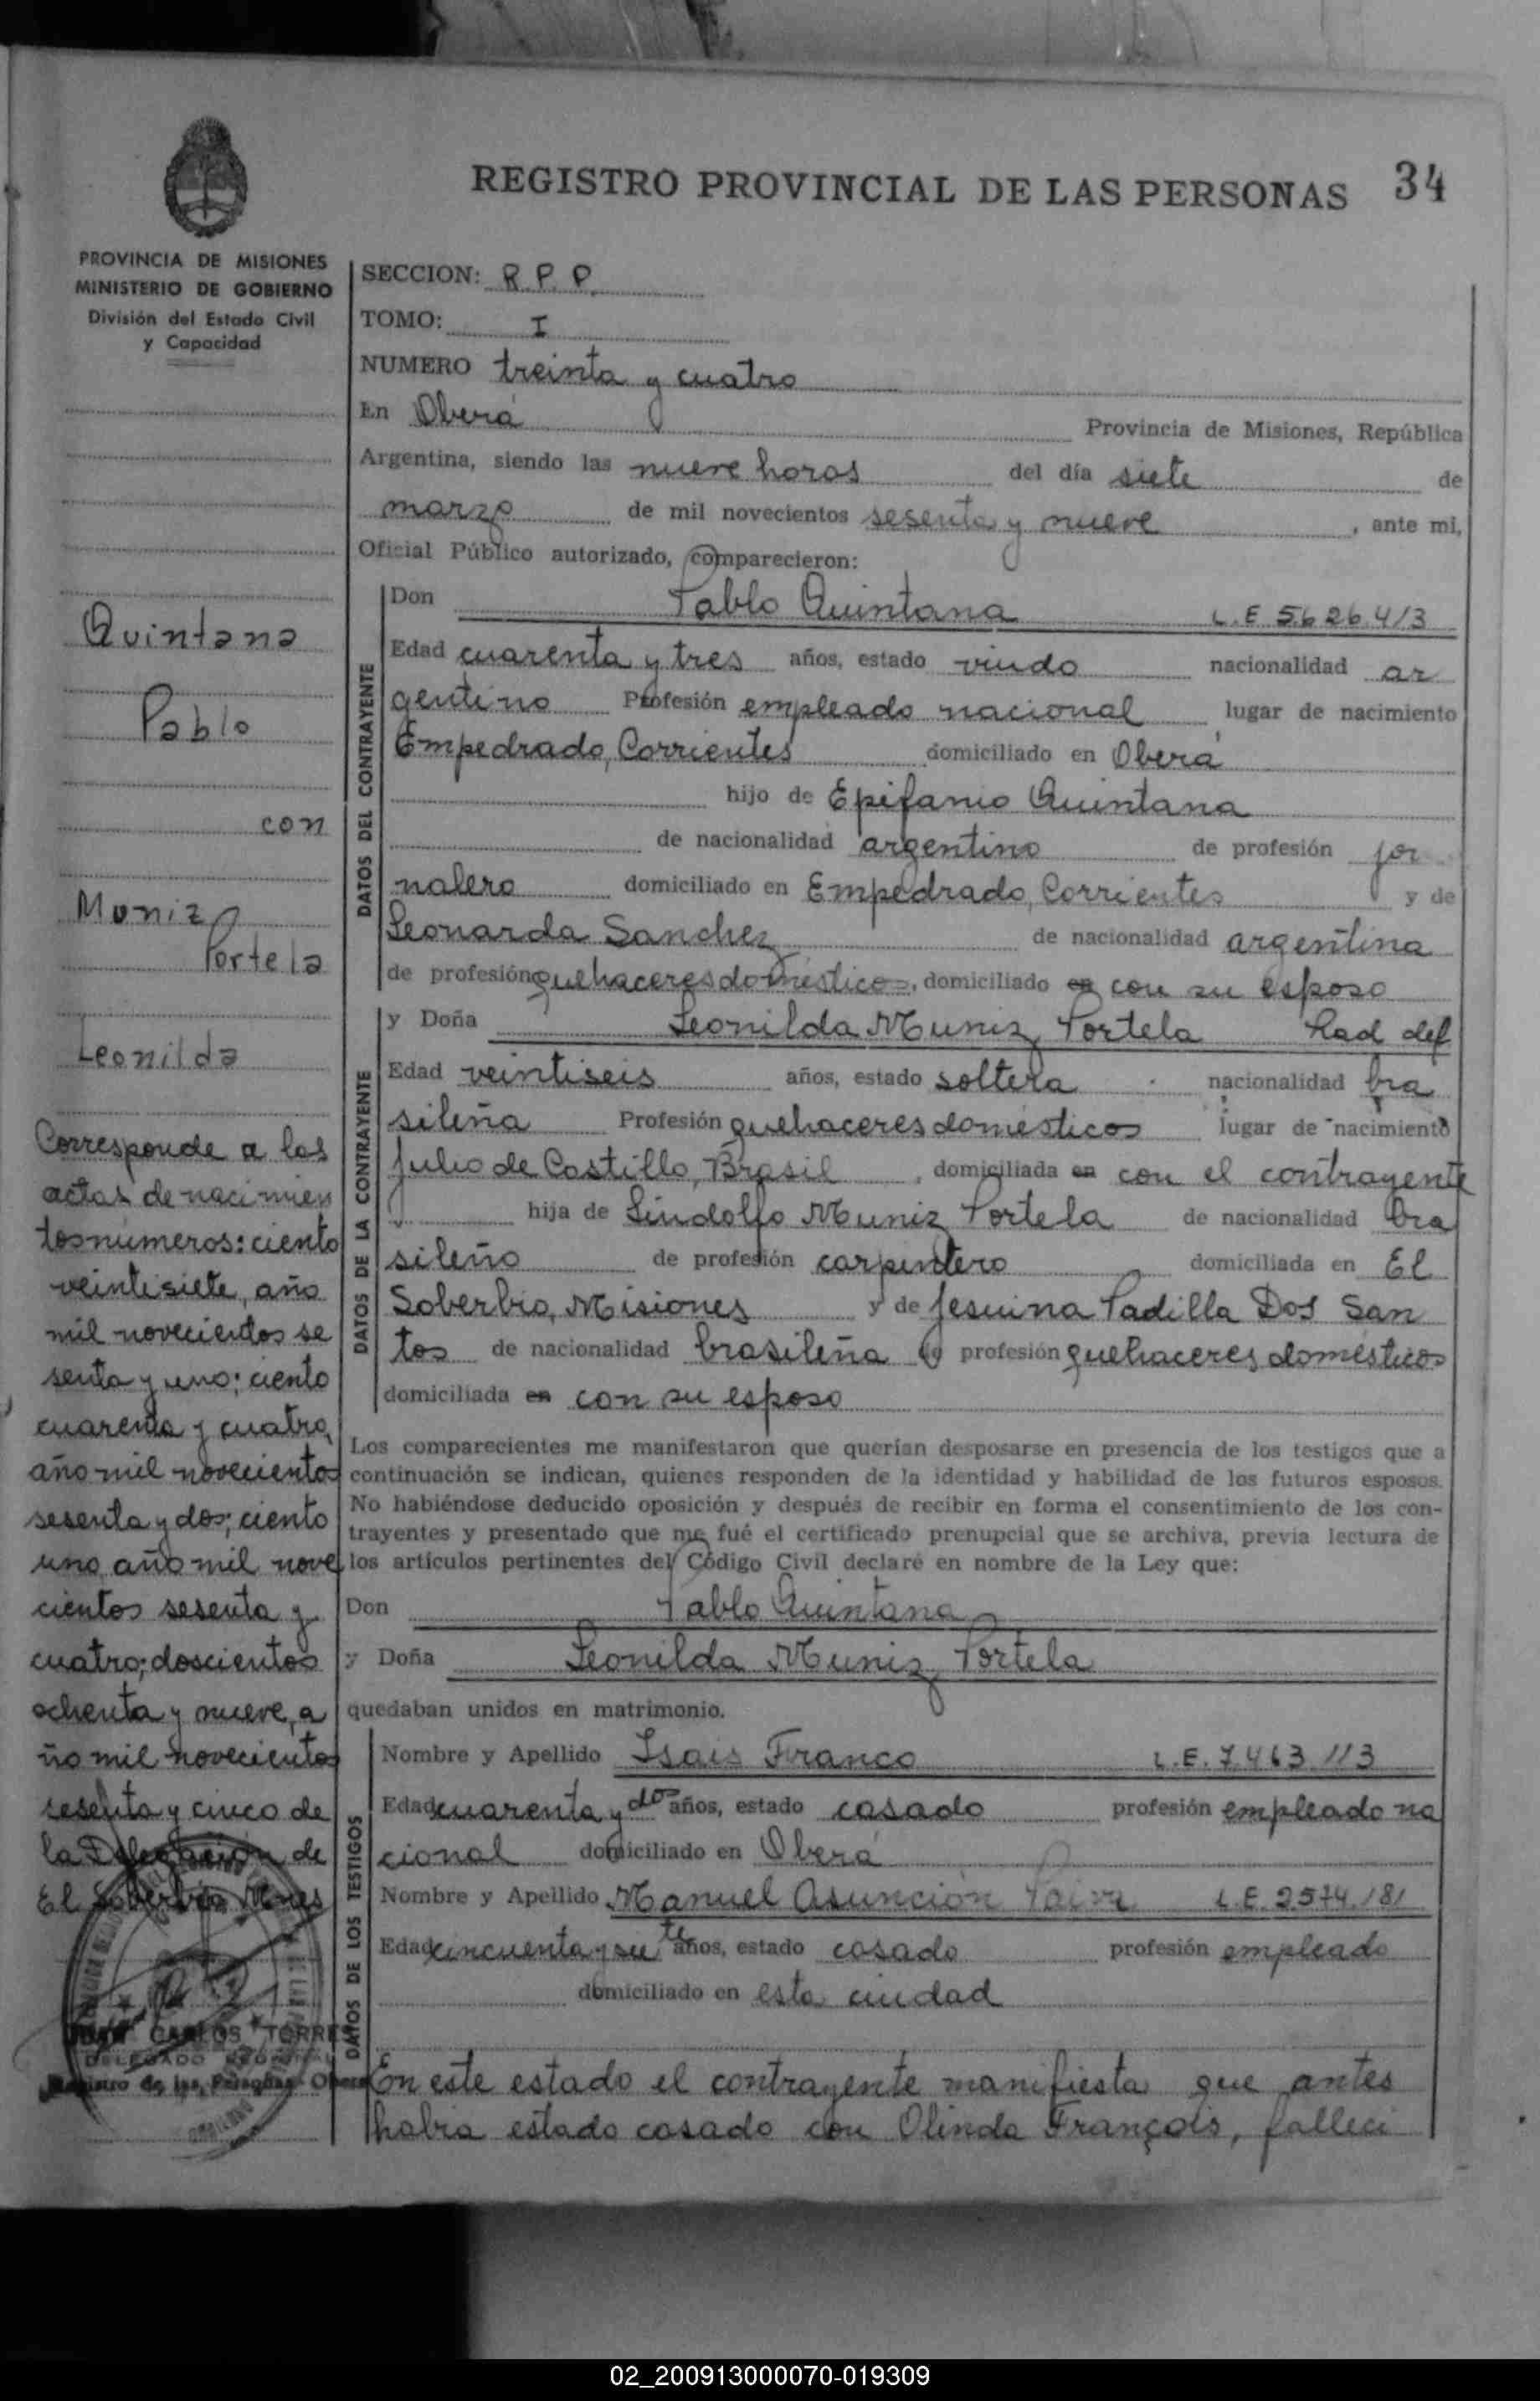 REGISTRO PROVINCIAL DE LAS PERSONAS 34
PROVINCIA DE MISIONES
MINISTERIO DE GOBIERNO
División del Estado Civil
y Capacidad
Quintana
Pablo
con
Muniz
Portela
Leonilda
Corresponde a las
actas de nacimien
tos números: ciento
veintisiete, año
mil novecientos se
senta y uno; ciento
cuarenta y cuatro,
año mil novecientos
sesenta y dos; ciento
uno año mil nove
cientos sesenta y
cuatro; doscientos
ochenta y nueve, a
ño mil novecientos
sesenta y cinco de
la Delegación de
El Soberbio Mnes
JUAN CARLOS TORRES
DELEGADO
Registro de las Personas - Obera
SECCION: R. P. P.
TOMO: I
NUMERO treinta y cuatro
En Oberá Provincia de Misiones, República
Argentina, siendo las nueve horas del día siete de
marzo de mil novecientos sesenta y nueve, ante mi,
Oficial Público autorizado, comparecieron:
DATOS DEL CONTRAYENTE
Don Pablo Quintana L.E 5626413
Edad cuarenta y tres años, estado viudo nacionalidad ar
gentino Profesión empleado nacional lugar de nacimiento
Empedrado, Corrientes domiciliado en Oberá
hijo de Epifanio Quintana
de nacionalidad argentino de profesión jor
nalero domiciliado en Empedrado, Corrientes y de
Leonarda Sanchez de nacionalidad argentina
de profesión quehaceres domésticos, domiciliado en con su esposo
DATOS DE LA CONTRAYENTE
y Doña Leonilda Muniz Portela had def
Edad veintiseis años, estado soltera nacionalidad bra
sileña Profesión quehaceres domésticos lugar de nacimiento
Julio de Castillo, Brasil, domiciliada en con el contrayente
hija de Lindolfo Muniz Portela de nacionalidad bra
sileño de profesión carpintero domiciliada en El
Soberbio, Misiones y de Jesuina Padilla Dos San
tos de nacionalidad brasileña de profesión quehaceres domésticos
domiciliada en con su esposo
Los comparecientes me manifestaron que querían desposarse en presencia de los testigos que a
continuación se indican, quienes responden de la identidad y habilidad de los futuros esposos.
No habiéndose deducido oposición y después de recibir en forma el consentimiento de los con-
trayentes y presentado que me fué el certificado prenupcial que se archiva, previa lectura de
los artículos pertinentes del Código Civil declaré en nombre de la Ley que:
Don Pablo Quintana
y Doña Leonilda Muniz Portela
quedaban unidos en matrimonio.
DATOS DE LOS TESTIGOS
Nombre y Apellido Isais Franco L.E. 7.463.113
Edad cuarenta y dos años, estado casado profesión empleado na
cional domiciliado en Oberá
Nombre y Apellido Manuel Asunción Paiva L.E. 2574.181
Edad cincuenta y siete años, estado casado profesión empleado
domiciliado en esta ciudad
En este estado el contrayente manifiesta que antes
habia estado casado con Olinda François, falleci
02_200913000070-019309